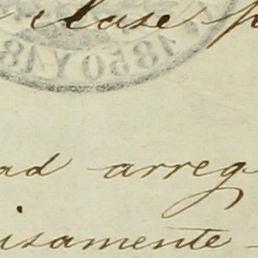 clase p
1850 Y 18
ad arreg
isamente